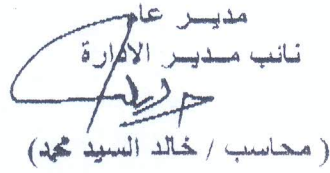 مديـر عام
نائب مـديـر الادارة
( محاسب / خالد السيد محمد)